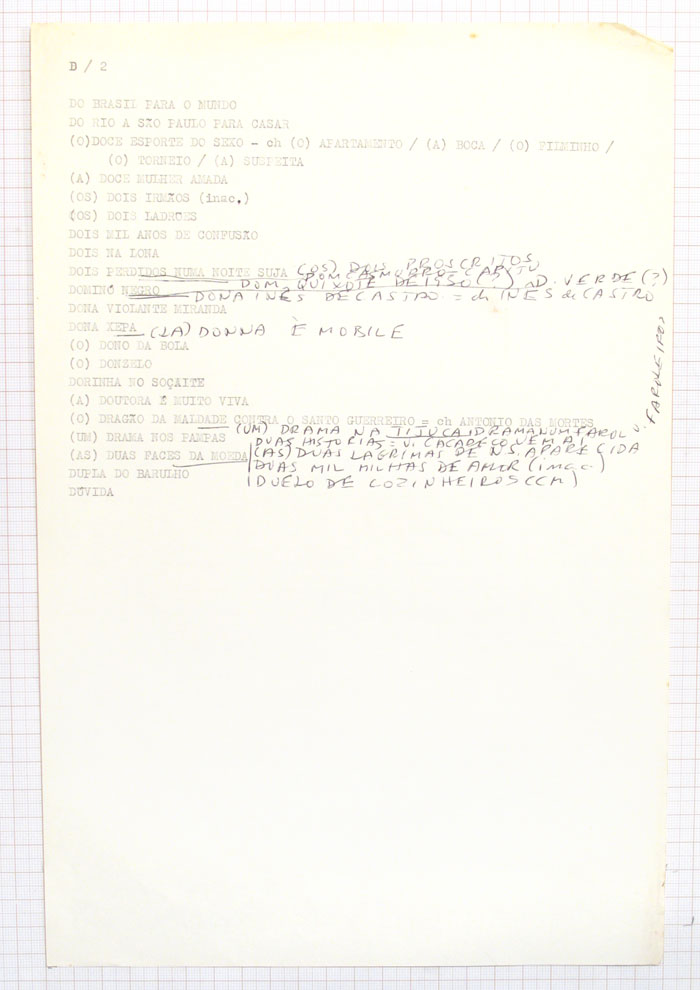 D / 2
DO BRASIL PARA O MUNDO
DO RIO A SÃO PAULO PARA CASAR
(O)DOCE ESPORTE DO SEXO - ch (O) APARTAMENTO / (A) BOCA / (O) FILMINHO /
(O) TORNEIO / (A) SUSPEITA
(A) DOCE MULHER AMADA
(OS) DOIS IRMÃOS (inac.)
(OS) DOIS LADRÕES
DOIS MIL ANOS DE CONFUSÃO
DOIS NA LONA
DOIS PERDIDOS NUMA NOITE SUJA (OS) DOIS PROSCRITOS
DOM CASMURRO = CAPITU
DOM QUIXOTE DE 1930 (?) D. VERDE (?)
DOMINÓ NEGRO
DONA INÊS DE CASTRO = ch INÊS de CASTRO
DONA VIOLANTE MIRANDA
DONA XEPA (LA) DONNA È MOBILE
(O) DONO DA BOLA
(O) DONZELO
DORINHA NO SOÇAITE
(A) DOUTORA É MUITO VIVA
(O) DRAGÃO DA MALDADE CONTRA O SANTO GUERREIRO = ch ANTONIO DAS MORTES
(UM) DRAMA NA TIJUCA, DRAMA NUM FAROL v. FAROLEIROS
(UM) DRAMA NOS PAMPAS
DUAS HISTORIAS = v. CACARECO VEM AI
(AS) DUAS FACES DA MOEDA (AS) DUAS LAGRIMAS DE N.S. APARECIDA
DUAS MIL MILHAS DE AMOR (inac.)
DUPLA DO BARULHO
DUELO DE COZINHEIROS (CM)
DÚVIDA